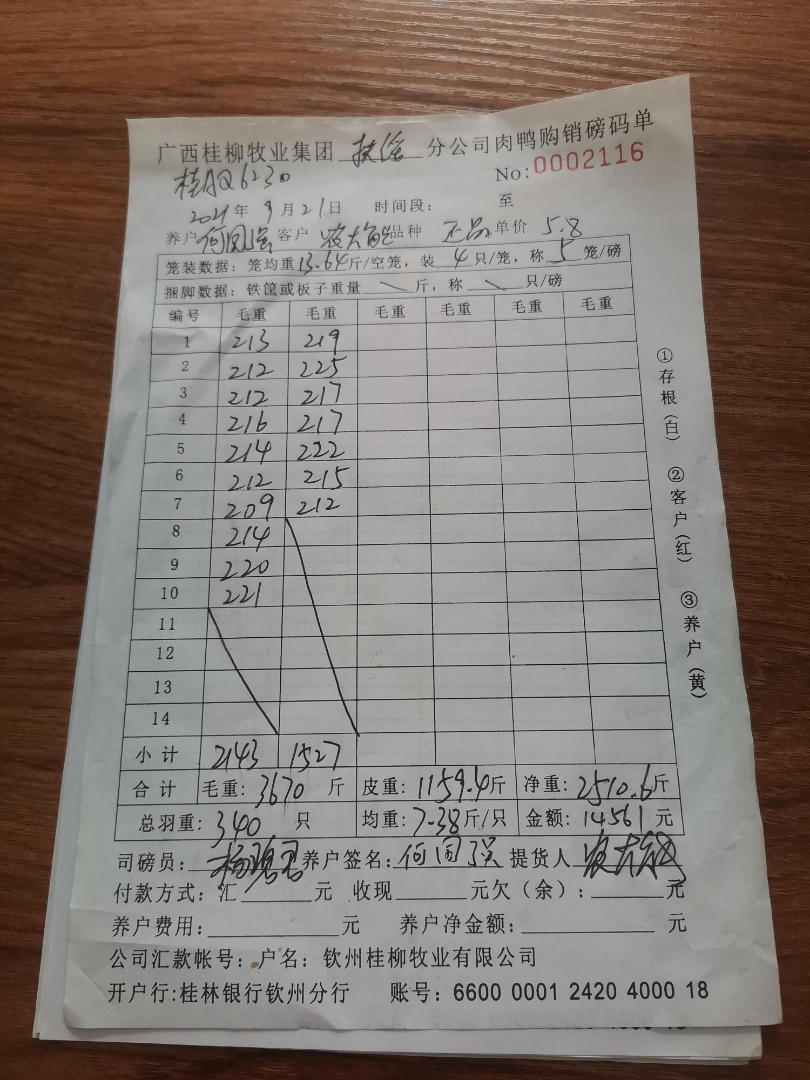 广西桂柳牧业集团 扶绥 分公司肉鸭购销磅码单
桂AQ6230 No:0002116
2021年9月21日 时间段: 至
养户 何国强 客户 农大 品种 正品 单价 5.8
笼装数据:笼均重13.64斤/空笼,装4只/笼,称5笼/磅
捆脚数据:铁筐或板子重量 \ 斤,称 \ 只/磅
编号 毛重 毛重 毛重 毛重 毛重 毛重
1 213 219
2 212 225
3 212 217
4 216 217
5 214 222
6 212 215
7 209 212
8 214
9 220
10 221
11
12
13
14
小计 2143 1527
合计 毛重:3670斤 皮重:1159.4斤 净重:2510.6斤
总羽重:340只 均重:7.38斤/只 金额:14561元
司磅员: 养户签名:何国强 提货人 农大
付款方式:汇 元 收现 元欠(余): 元
养户费用: 元 养户净金额: 元
公司汇款帐号:户名:钦州桂柳牧业有限公司
开户行:桂林银行钦州分行 账号:6600 0001 2420 4000 18
①存根(白) ②客户(红) ③养户(黄)